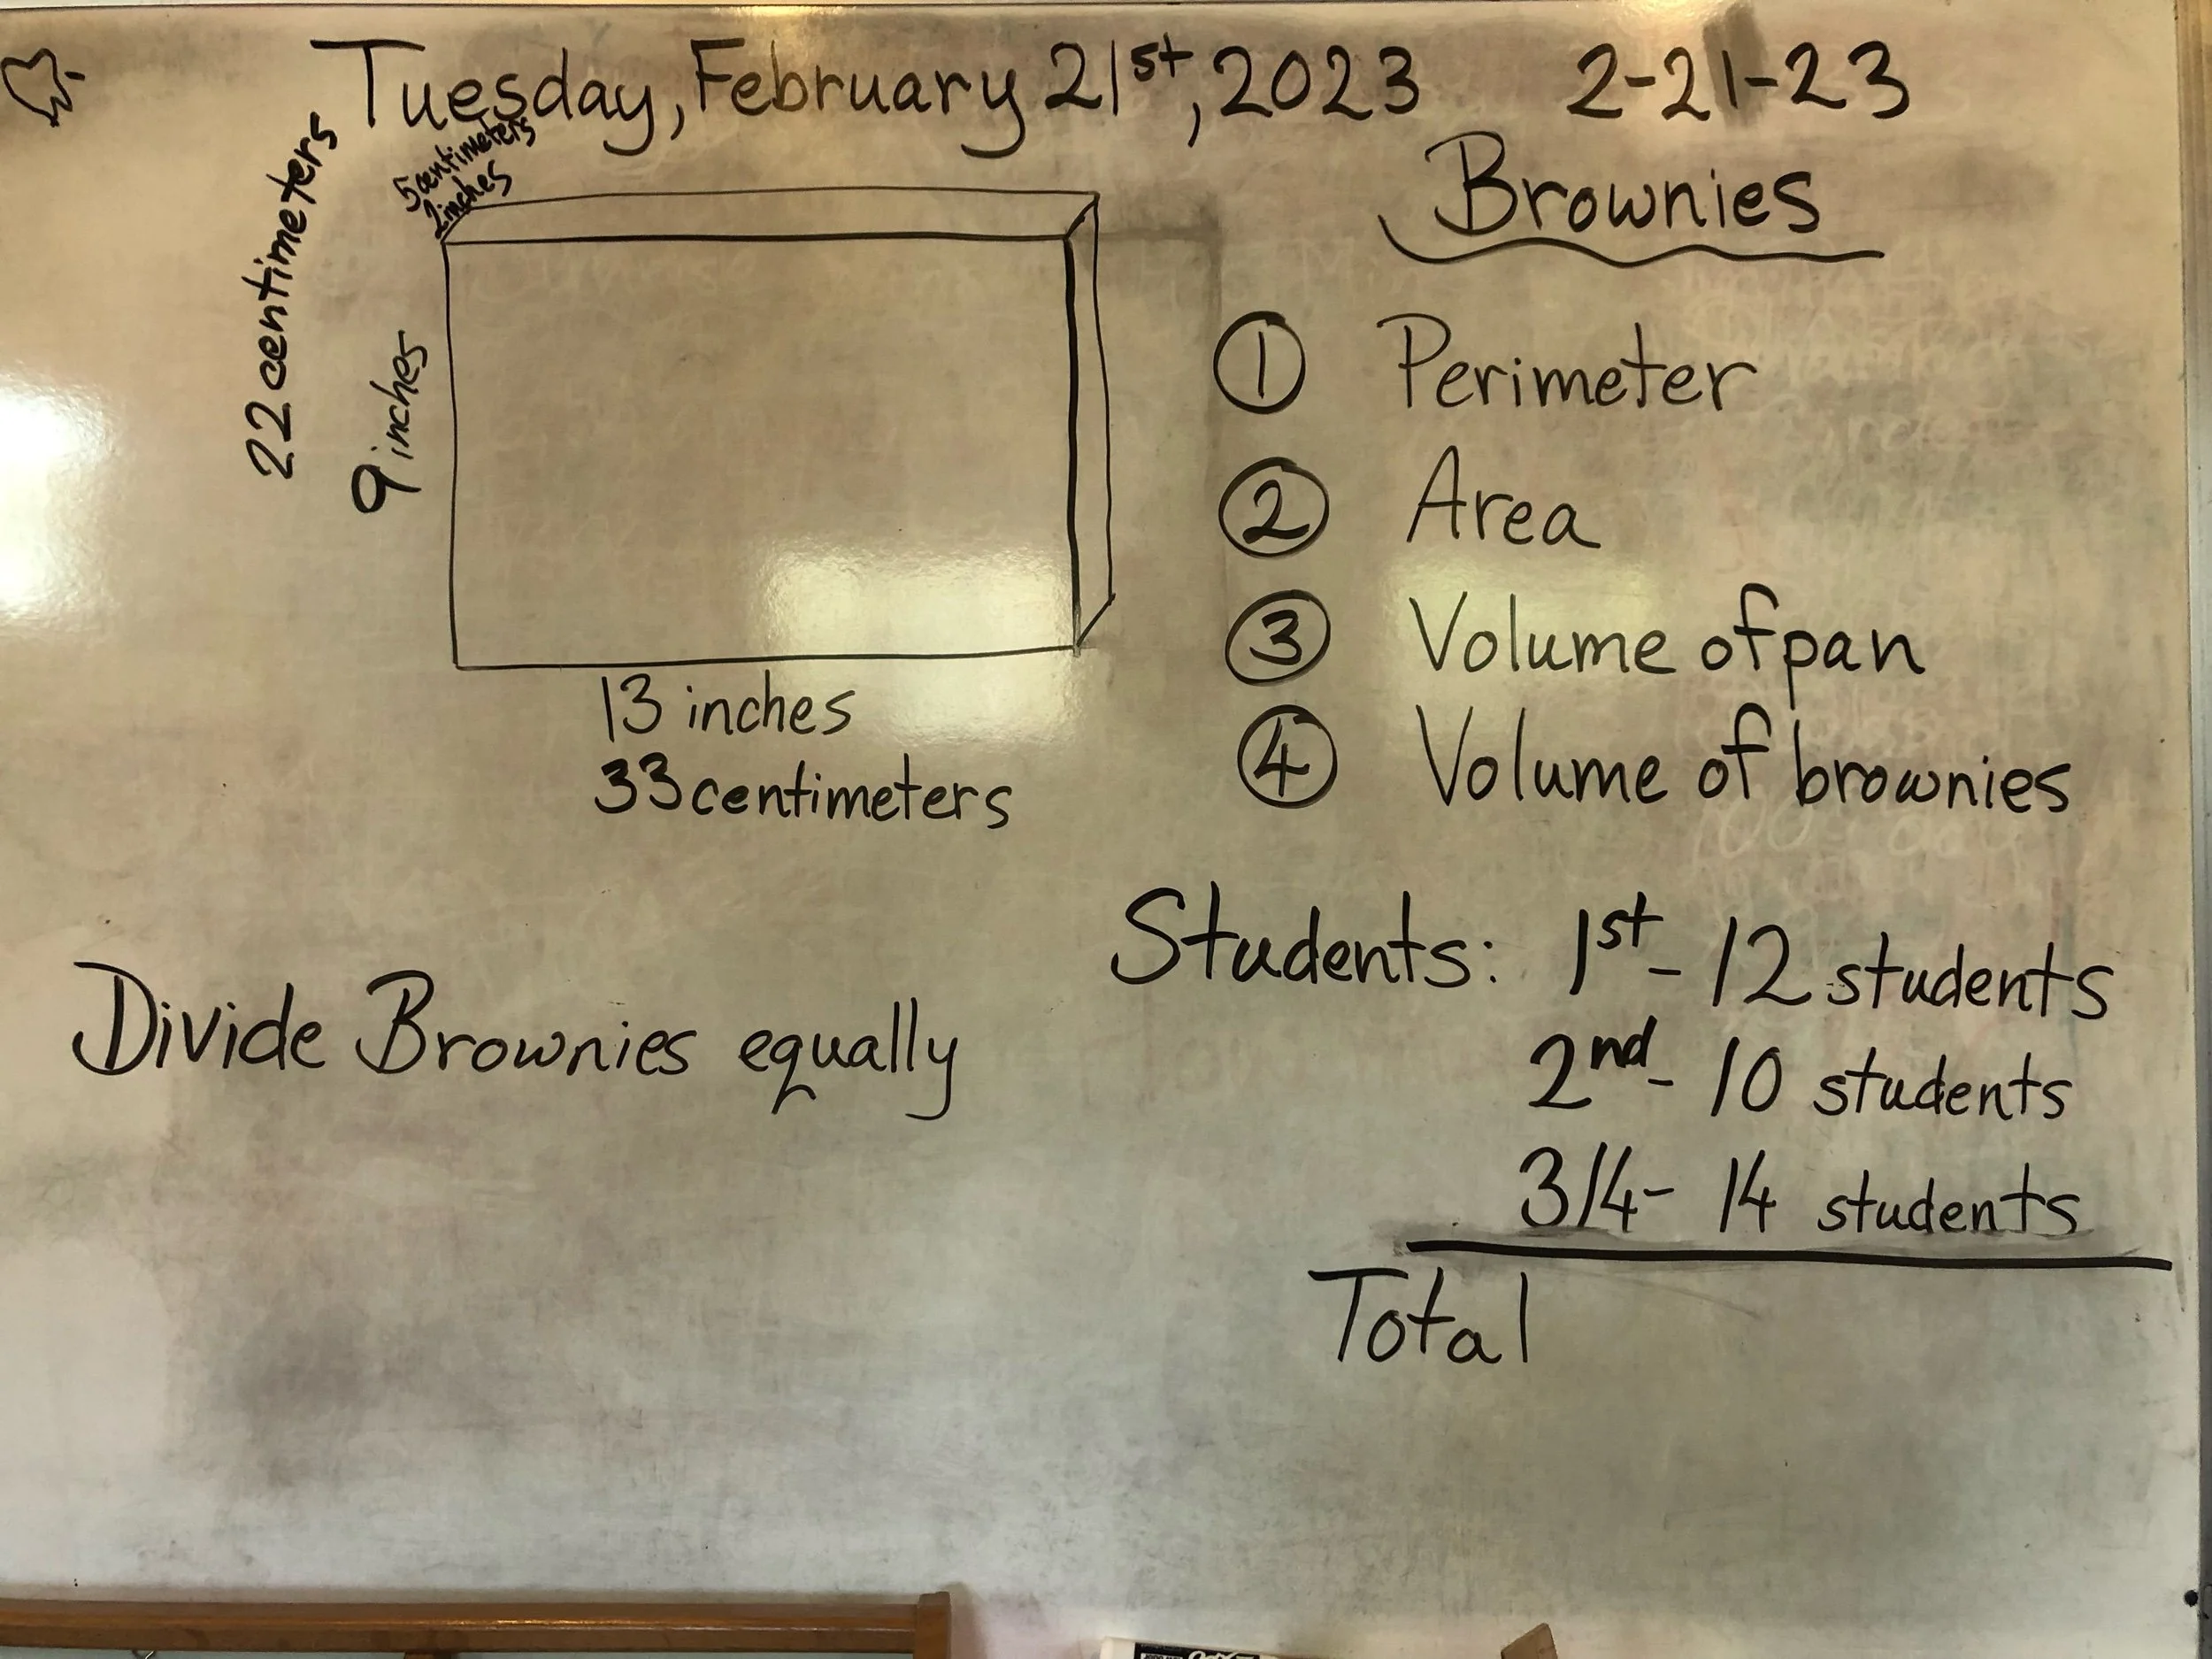 Tuesday, February 21st, 2023 2-21-23
Brownies
5 centimeters
2 inches
22 centimeters
9 inches
13 inches
33 centimeters
① Perimeter
② Area
③ Volume of pan
④ Volume of brownies
Students: 1st - 12 students
2nd - 10 students
3/4 - 14 students
Total
Divide Brownies equally